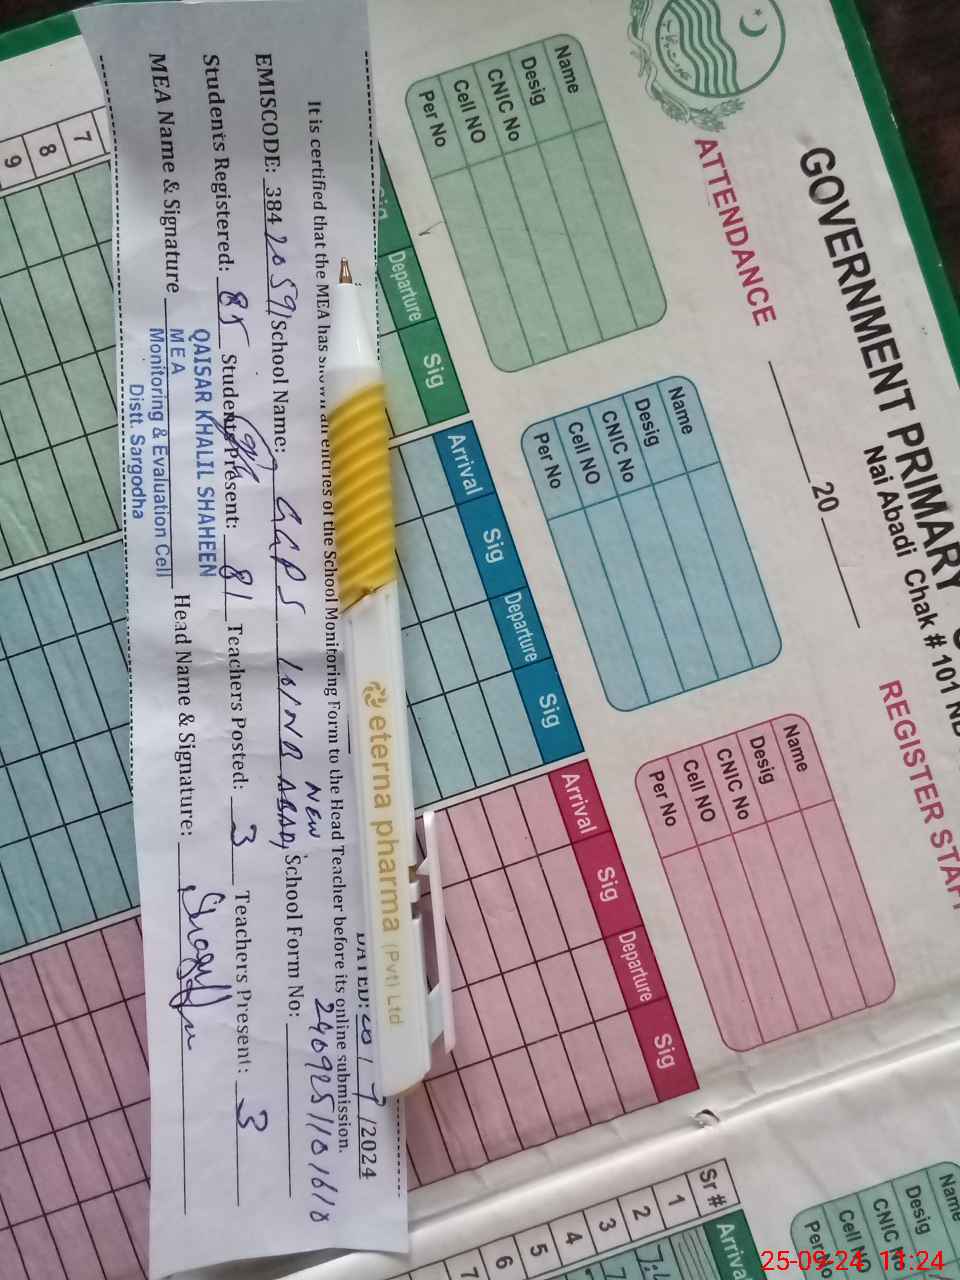 GOVERNMENT PRIMARY
Nai Abadi Chak # 101 NB
ATTENDANCE
20
REGISTER STAFF
Name
Desig
CNIC No
Cell NO
Per No
Name
Desig
CNIC No
Cell NO
Per No
Name
Desig
CNIC No
Cell NO
Per No
Sig
Departure
Sig
Arrival
Sig
Departure
Sig
Arrival
Sig
Departure
Sig
7
8
9
eterna pharma (Pvt) Ltd
DATED: /9/2024
It is certified that the MEA has shown all entries of the School Monitoring Form to the Head Teacher before its online submission.
EMISCODE: 38420591 School Name: GGPS 101NB NEW ABADI School Form No: 2409251101618
Students Registered: 85 Students Present: 81 Teachers Posted: 3 Teachers Present: 3
MEA Name & Signature Head Name & Signature:
QAISAR KHALIL SHAHEEN
M E A
Monitoring & Evaluation Cell
Distt. Sargodha
Name
Desig
CNIC
Cell
Per No
Sr #
Arriva
1
2
3
4
5
6
7
25-09-24 11:24